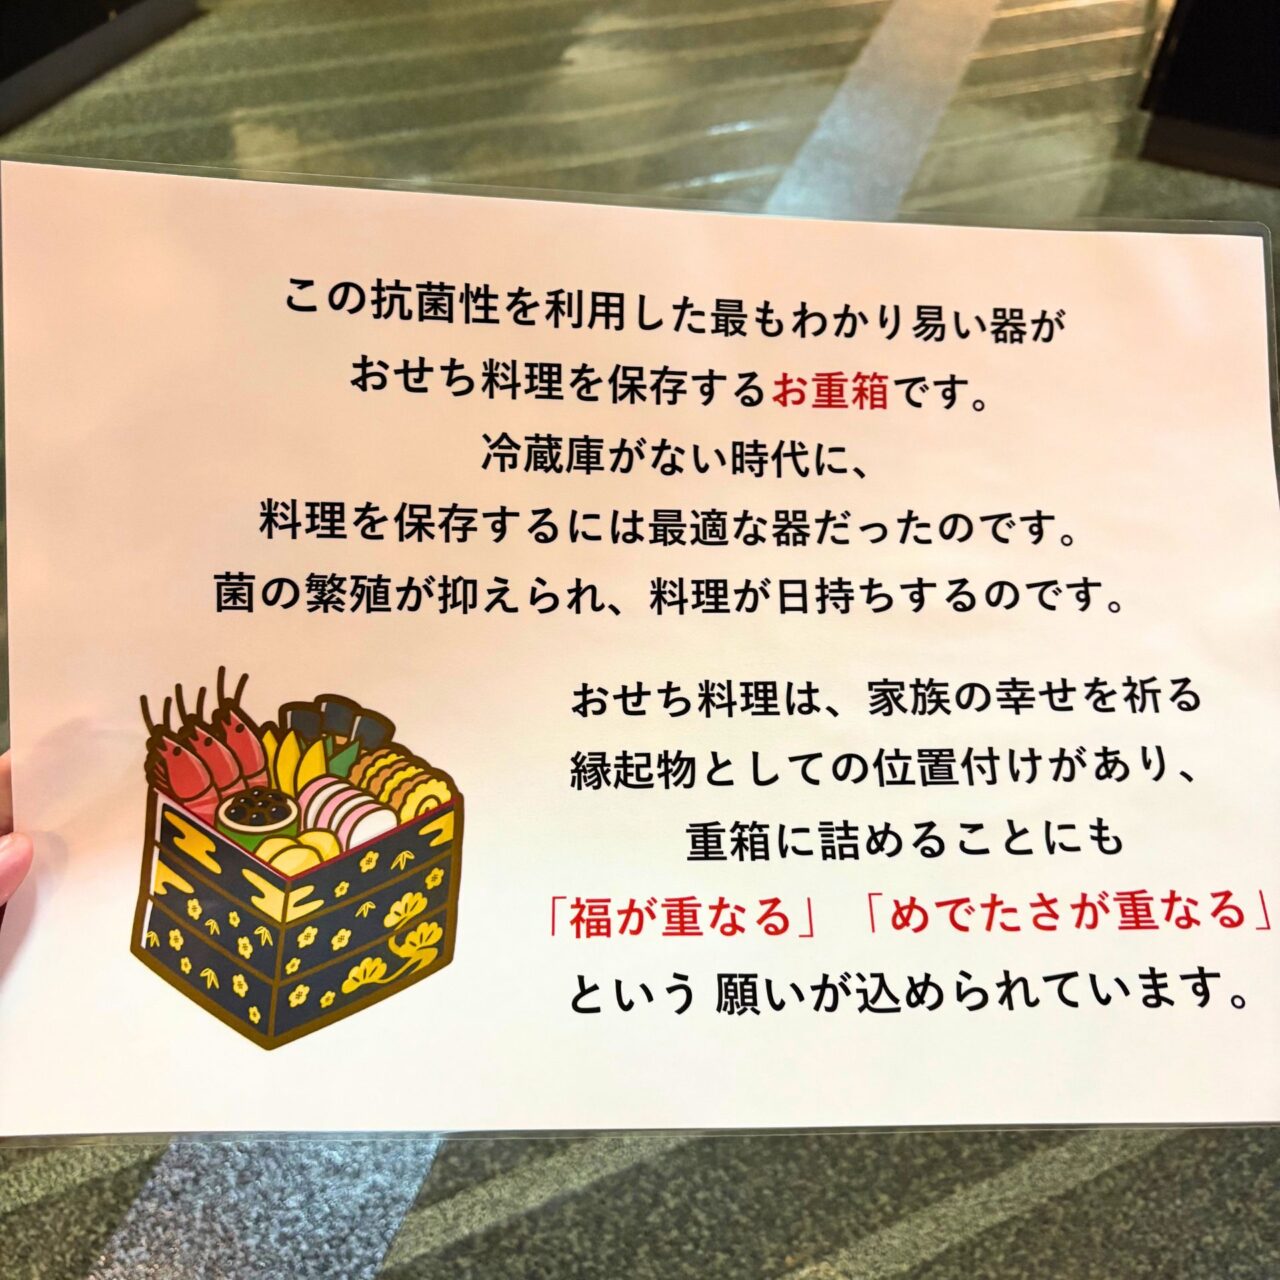 この抗菌性を利用した最もわかり易い器が
おせち料理を保存するお重箱です。
冷蔵庫がない時代に、
料理を保存するには最適な器だったのです。
菌の繁殖が抑えられ、料理が日持ちするのです。
おせち料理は、家族の幸せを祈る
縁起物としての位置付けがあり、
重箱に詰めることにも
「福が重なる」「めでたさが重なる」
という 願いが込められています。